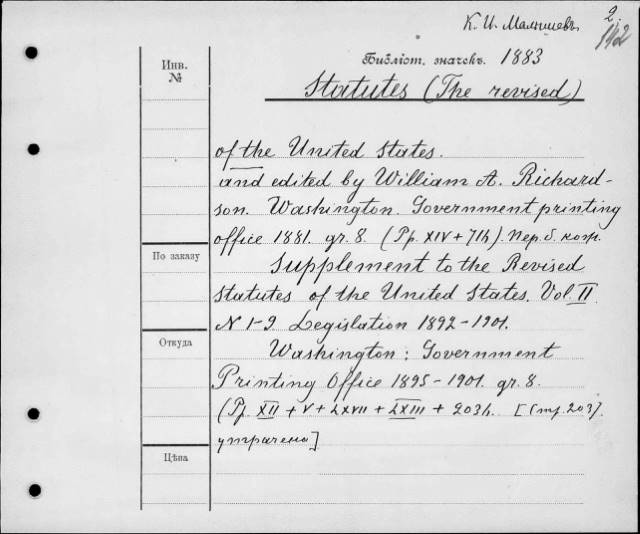 К. И. Малышевъ
2.
142
Инв.
№
Библіот. значекъ. 1883
Statutes (The revised)
of the United States.
and edited by William A. Richard-
son. Washington. Government printing
office 1881. gr. 8. (Pp. XIV + 71h). пер. б. кож.
По заказу
Supplement to the Revised
statutes of the United States. Vol. II
N 1-9 Legislation 1892-1901.
Откуда
Washington: Government
Printing Office 1895-1901. gr. 8.
(Pp. XII + V + LXVII + LXIII + 203h. [(стр. 203)
утрачено]
Цѣна